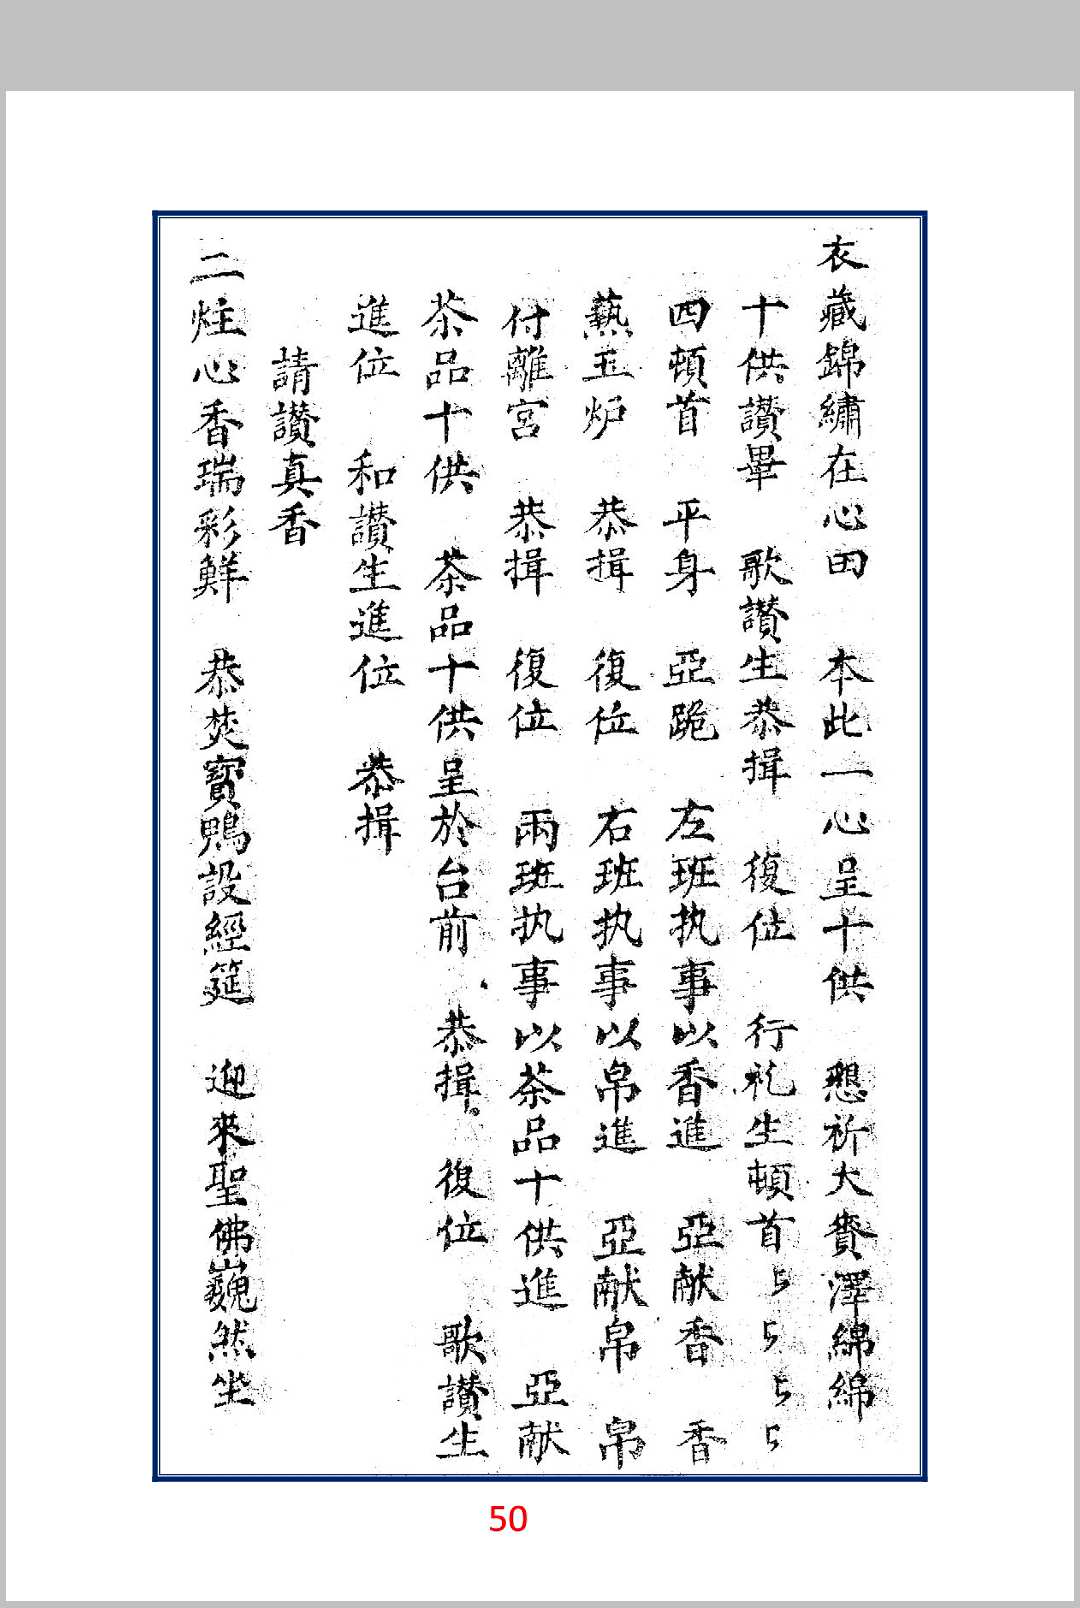 衣藏錦繡在心田　本此一心呈十供　懇祈大賚澤綿綿
十供讚畢　歌讚生恭揖　復位　行礼生頓首㇉㇉㇉㇉
四頓首　平身　亞跪　左班执事以香進　亞献香　香
爇玉炉　恭揖　復位　右班执事以帛進　亞献帛　帛
付離宮　恭揖　復位　兩班执事以茶品十供進　亞献
茶品十供　茶品十供呈於台前　恭揖　復位　歌讚生
進位　和讚生進位　恭揖
請讚真香
二炷心香瑞彩鮮　恭焚寶鴨設經筵　迎來聖佛巍然坐
50